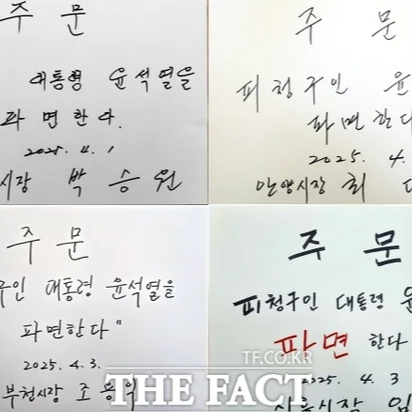 주 문
대통령 윤석열을
파면한다.
2025. 4. 1
시장 박승원
주 문
피청구인 윤
파면한다
2025. 4.
안양시장 최 대
주 문
구인 대통령 윤석열을
파면한다"
2025. 4. 3.
부천시장 조용익
주 문
피청구인 대통령 윤
파면 한다
2025. 4. 3
시흥시장 임
TF.CO.KR
THE FACT